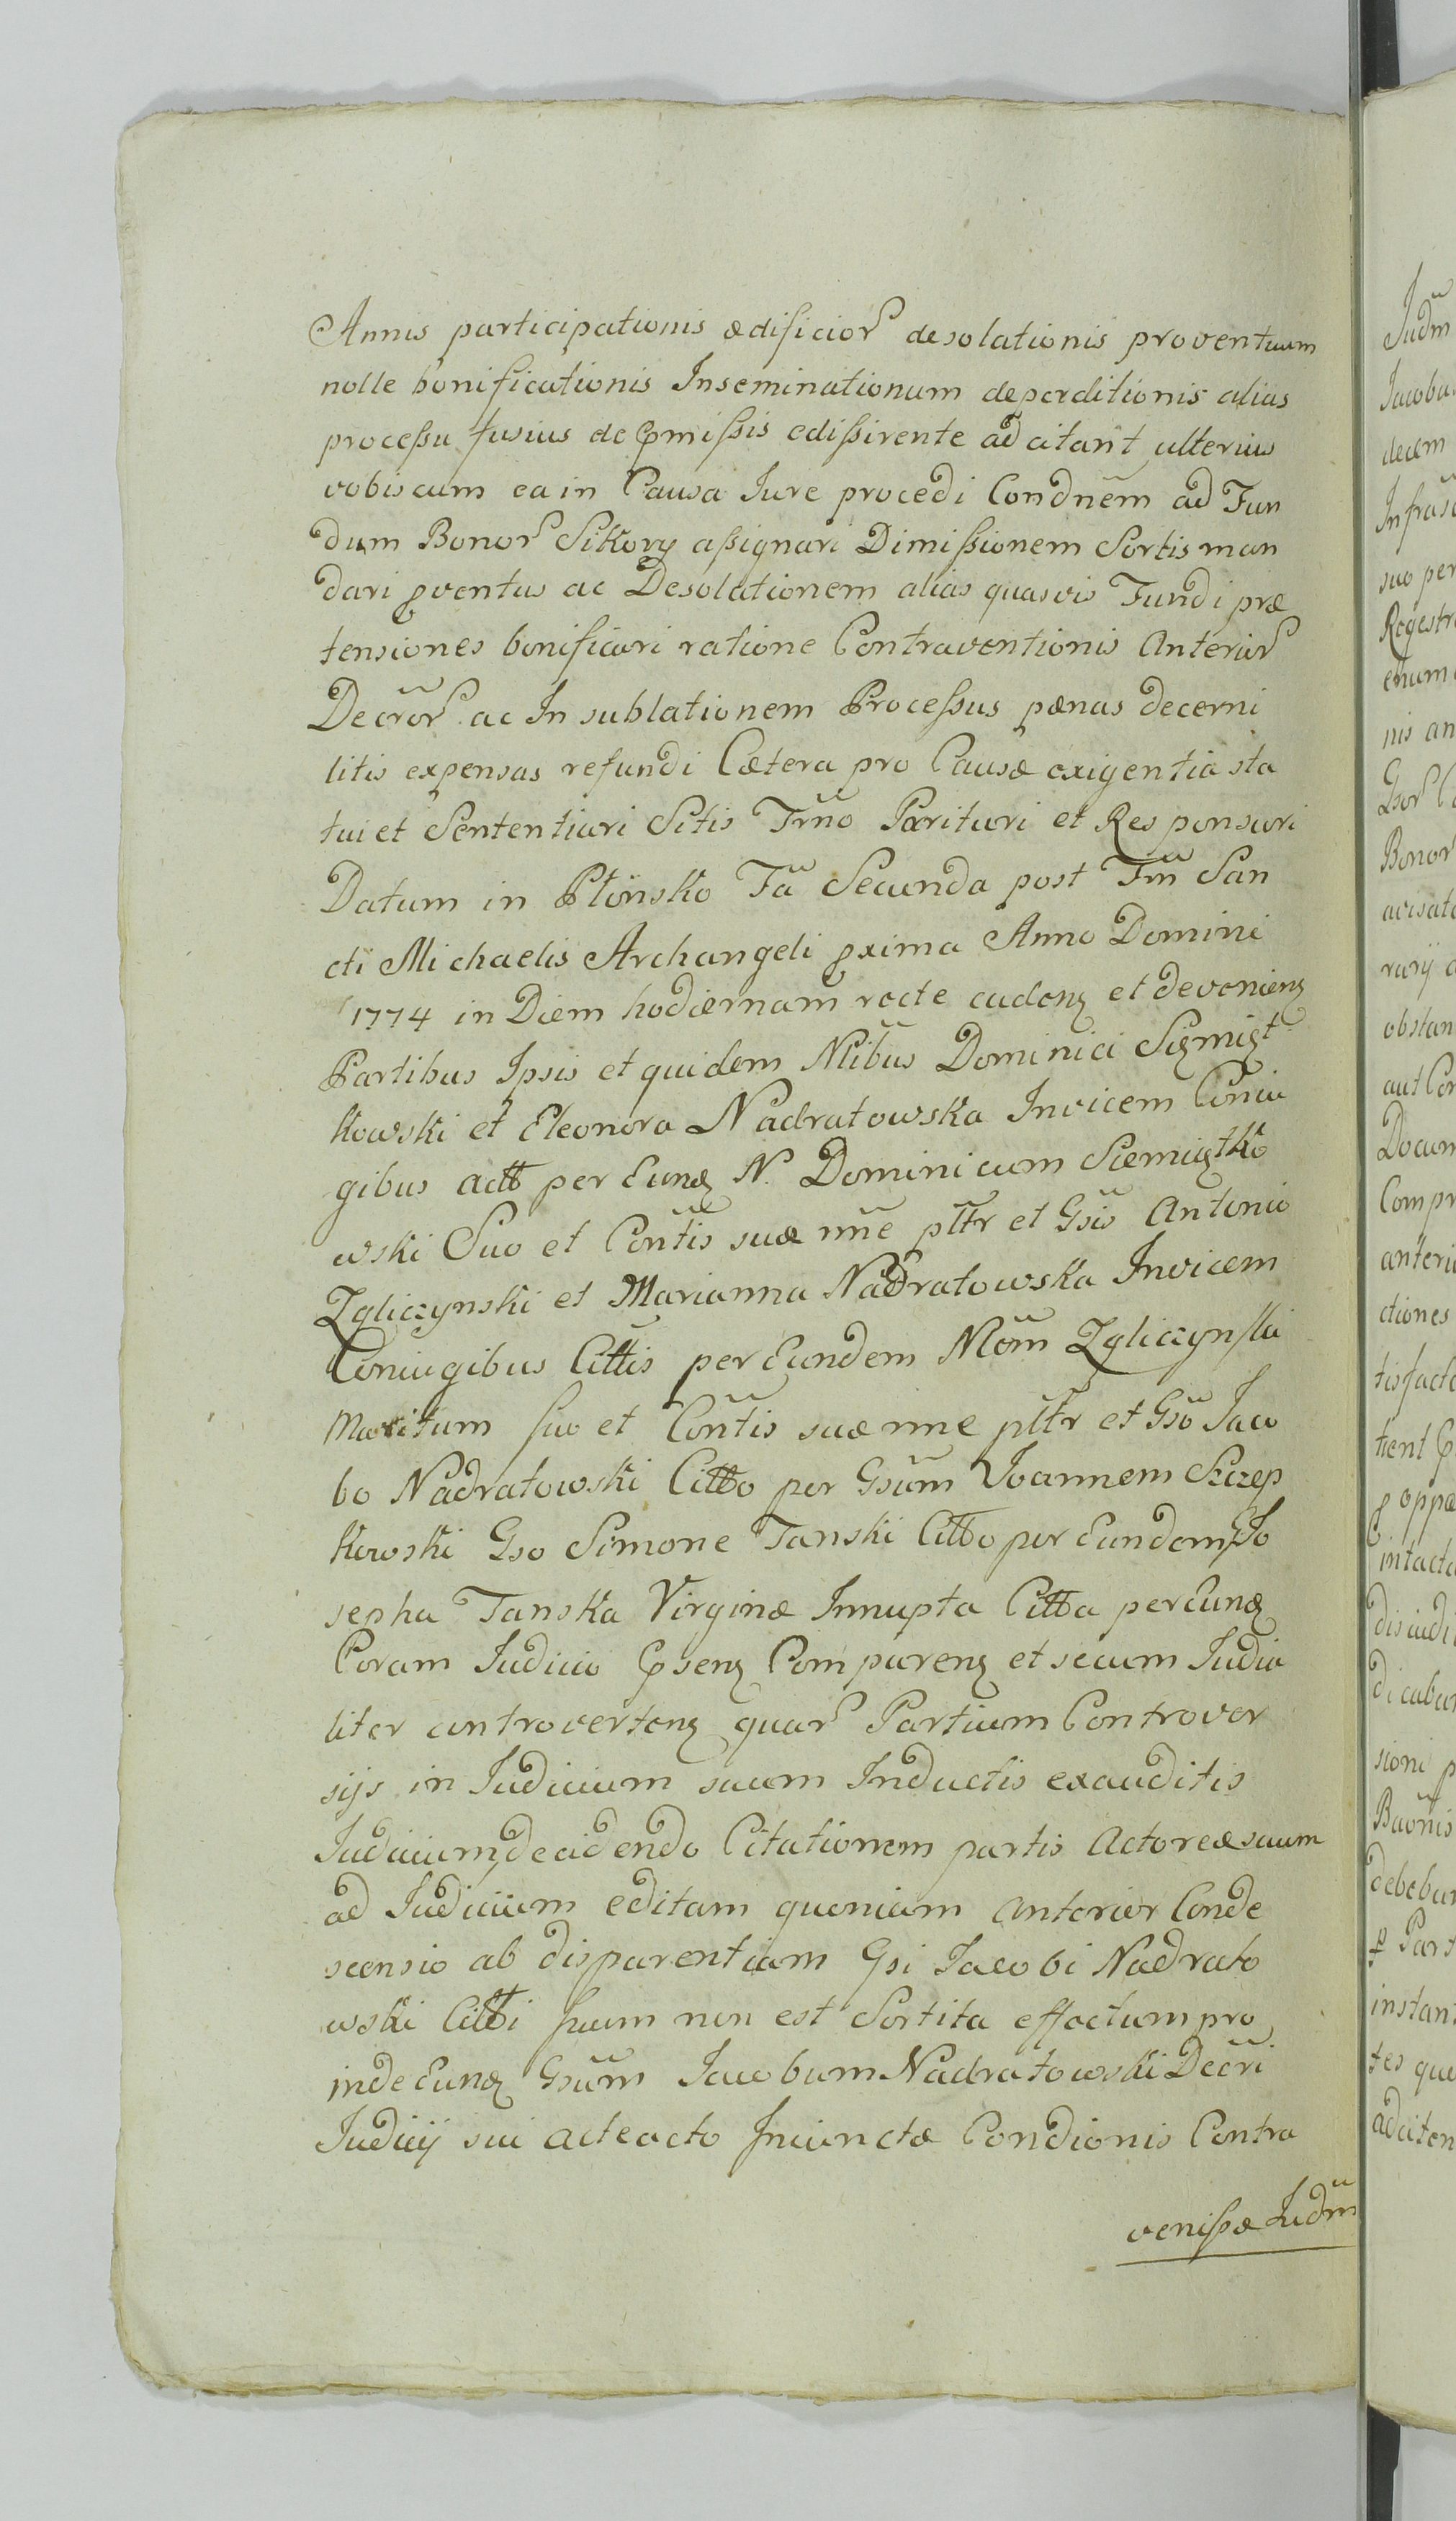 Annis participationis ædificior desolationis proventuum
nolle bonificationis Inseminationum deperditionis alias
processu fusius de pmissis edissirente adcitant ulterius
vobiscum ea in Causa Iure procedi Condnem ad Fun
dum Bonor Sikory assignari Dimissionem Sortis man
dari pventus ac Desolationem alias quasvis Fundi præ
tensiones bonificari ratione Contraventionis Anterior
Decror ac In sublationem Processus pænas decerni
litis expensas refundi Cætera pro Causæ exigentia sta
tui et Sententiari Sitis Trno Parituri et Responsuri
Datum in Płońsko Fa Secunda post Fm San
cti Michaelis Archangeli pxima Anno Domini
1774 in Diem hodiernam recte cadenz et devenienz
Partibus Ipsis et quidem Nlibus Dominici Siemiąt
kowski et Eleonora Nadratowska Invicem Coniu
gibus actt per Eunz N. Dominicum Siemiątko
wski Suo et Contis suæ nne pltr et Gsis Antonio
Zgliczynski et Marianna Nadratowska Invicem
Coniugibus Cittis per Eundem Nlom Zgliczynski
Maritum suo et Contis suæ nne pltr et Gso Iaco
bo Nadratowski Citto per Gsum Ioannem Szczep
kowski Gso Simone Tanski Citto per Eundem Io
sepha Tanska Virginæ Innupta Citta per Eunz
Coram Iudicio psenz Comparenz et secum Iudicia
liter controvertenz quar Partium Controver
sijs in Iudicium suum Inductis exauditis
Iudicium decidendo Citationem partis Actoreæ suum
ad Iudicium editam quoniam anterior Conde
scensio ab disparentiam Gsi Iacobi Nadrato
wski Citti suum non est Sortita effectum pro
inde Eunz Gsum Iacobum Nadratowski Decri
Iudicij sui acteacto Iniunctæ Condionis Contra
venissæ Iudm